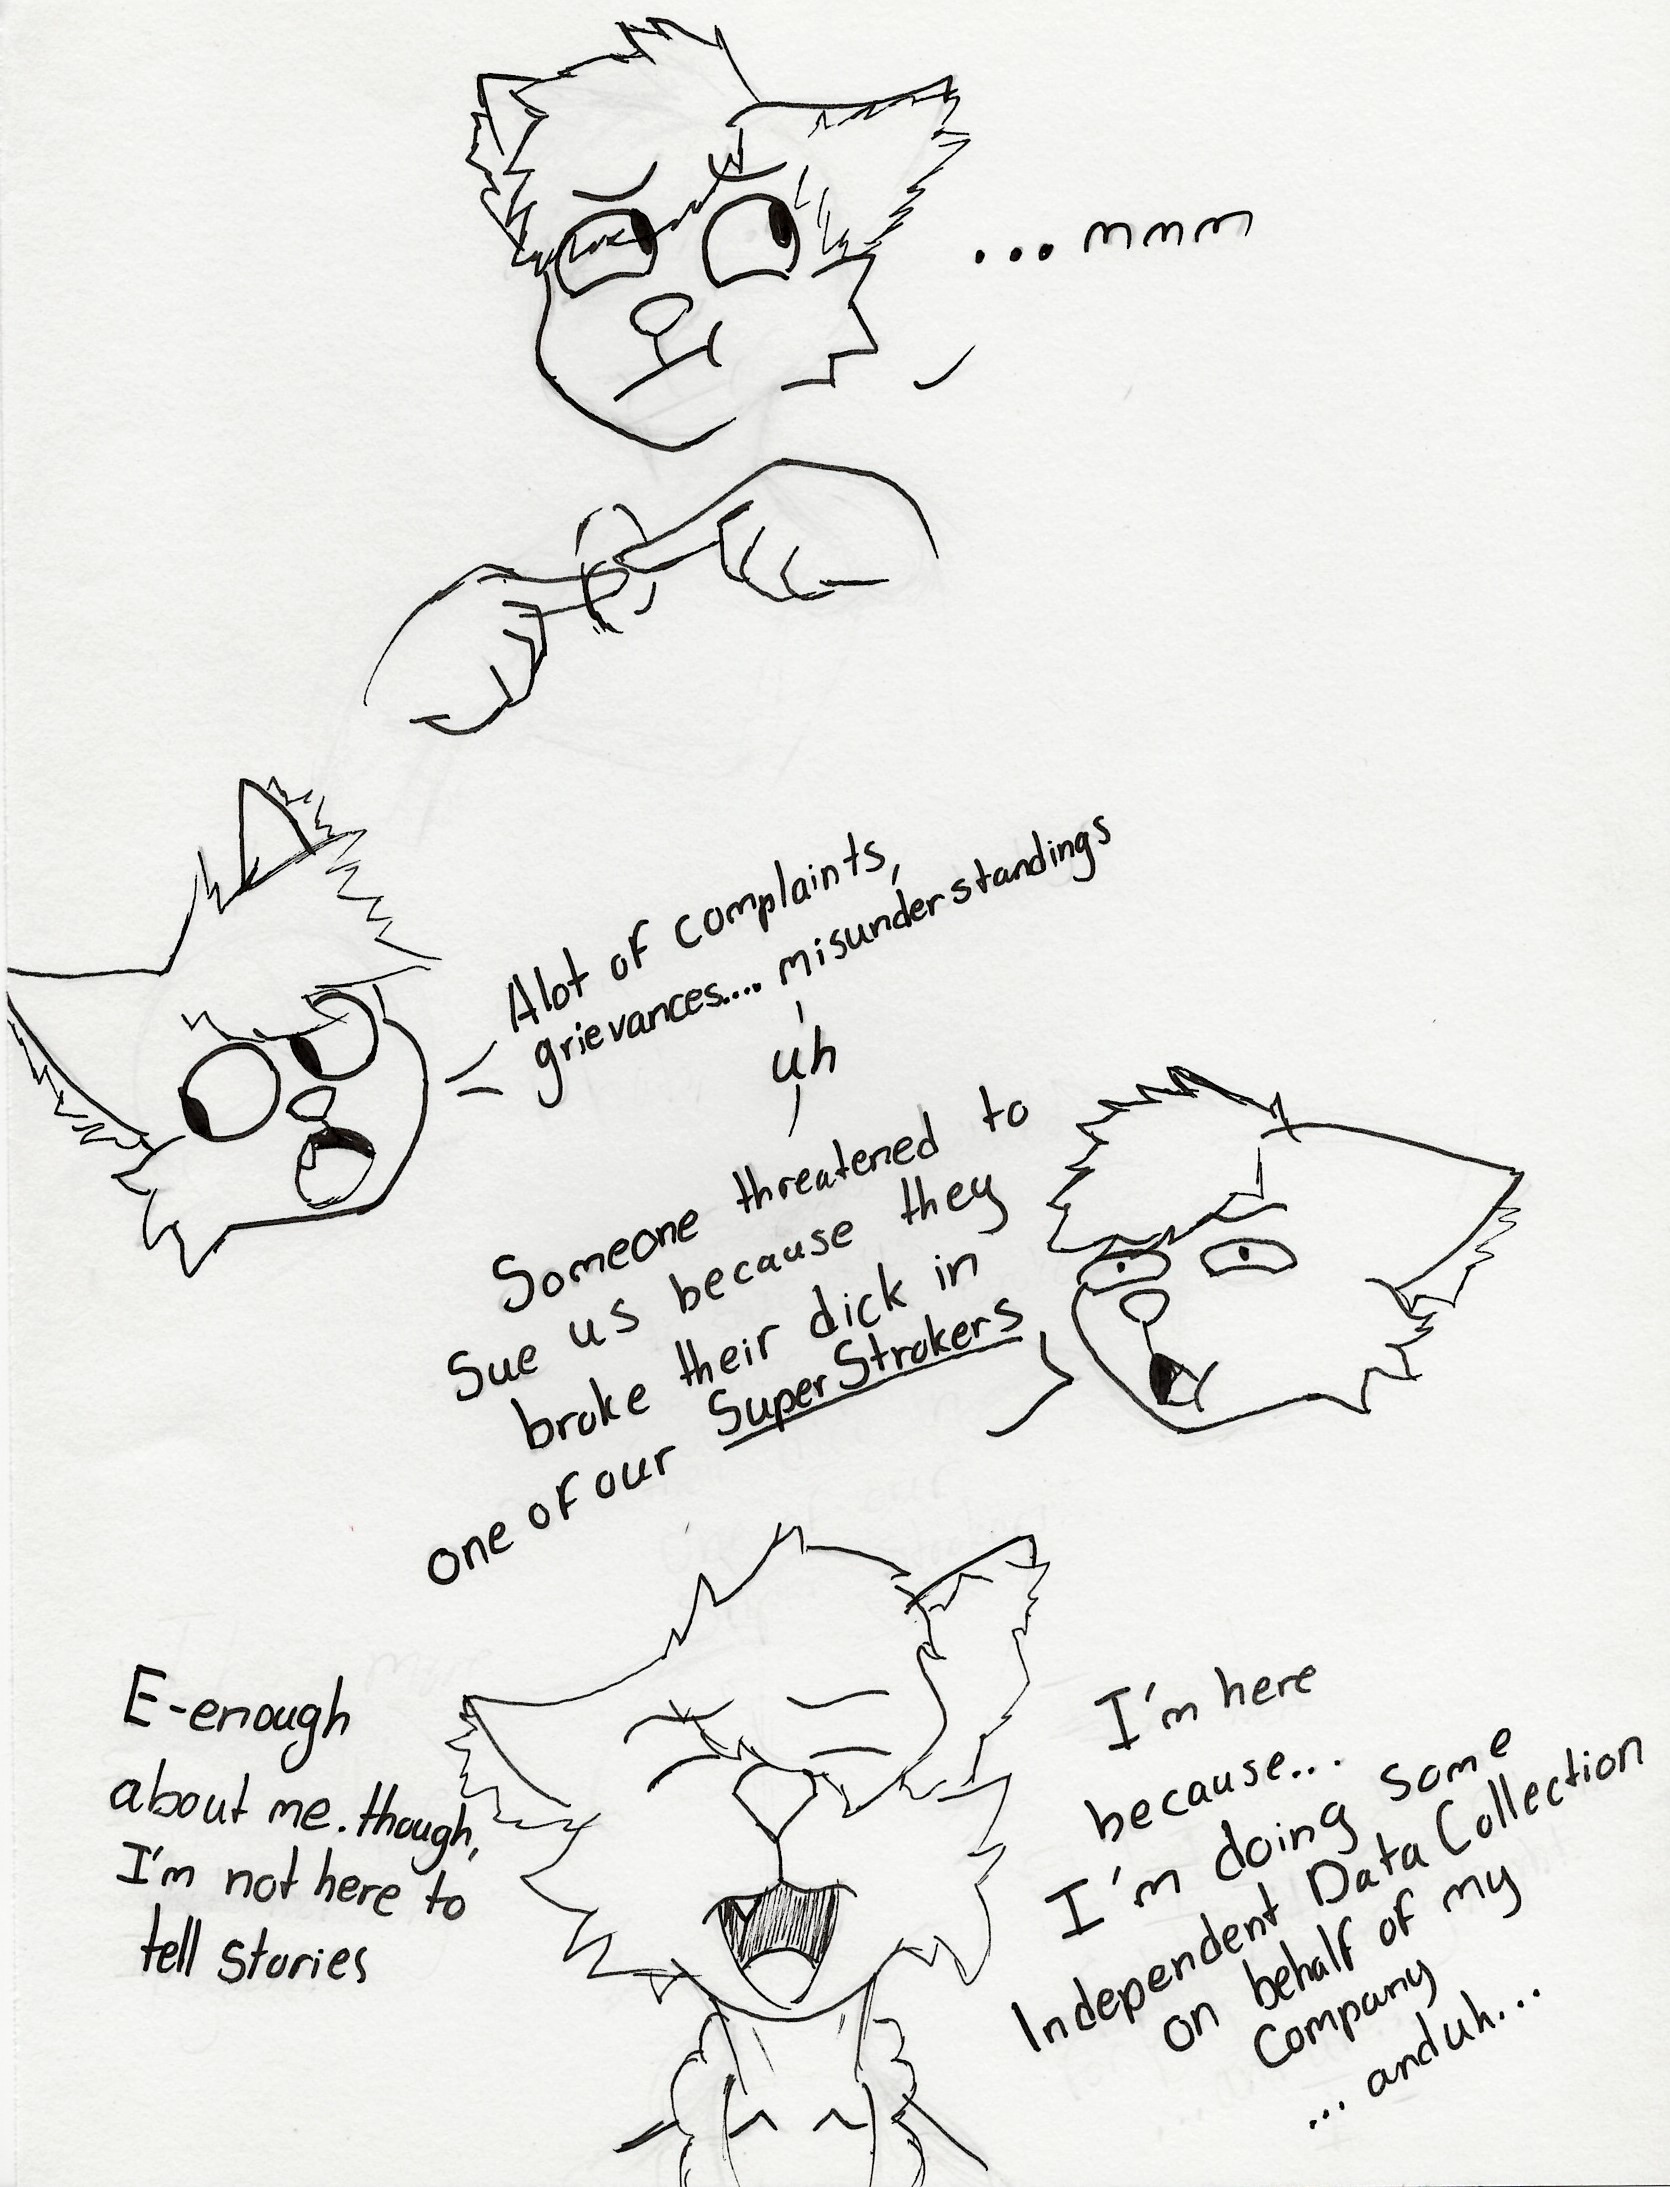 ...mmm
Alot of complaints,
grievances.... misunderstandings
uh
Someone threatened to
Sue us because they
broke their dick in
one of our SuperStrokers
E-enough
about me. though,
I'm not here to
tell stories
I'm here
because...
I'm doing some
Independent Data Collection
on behalf of my
Company
... and uh...